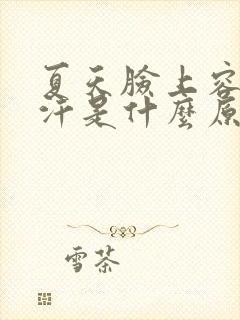 夏天臉上容
汗是什麼原
雪茶